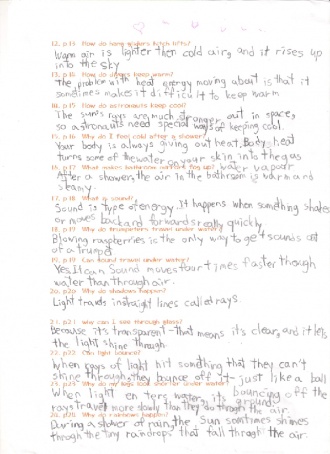 12. p.13 How do hang gliders catch lifts?
Warm air is lighter then cold air, and it rises up
into the sky
13. p.15 How do divers keep warm?
The problem with heat energy moving about is that it
sometimes makes it difficult to keep warm
14. p.15 How do astronauts keep cool?
The sun's rays are much stronger out in space,
so astronauts need special ways of keeping cool.
15. p.16 Why do I feel cold after a shower?
Your body is always giving out heat. Body heat
turns some of the water on your skin into the gas
water vapour
16. p.17 What makes bathroom mirrors fog up?
After a shower, the air in the bathroom is warm and
steamy.
17. p.18 What is sound?
Sound is type of energy. It happens when something shakes
or moves backard forwards really quickly
18. p.19 Why do trumpeters
Blowing raspberries is the only way to get sounds out
of a trumpet
19. p.19 Can sound travel under water?
Yes it can Sound moves four times faster though
water than through air.
20. p.20 Why do shadows happen?
Light travels in straight lines called rays.
21. p.21 Why can I see through glass?
Because it's transparent - that means it's clear, and it lets
the light shine through.
22. p.22 Can light bounce?
When rays of light hit something that they can't
shine through, they bounce off it - just like a ball
bouncing off the
ground.
23. p.23 Why do my legs look shorter under water?
When light enters water, its
rays travel more slowly than they do through the air.
24. p.25 Why do rainbows happen?
During a shower of rain, the Sun somtimes shines
through the tiny raindrops that fall through the air.